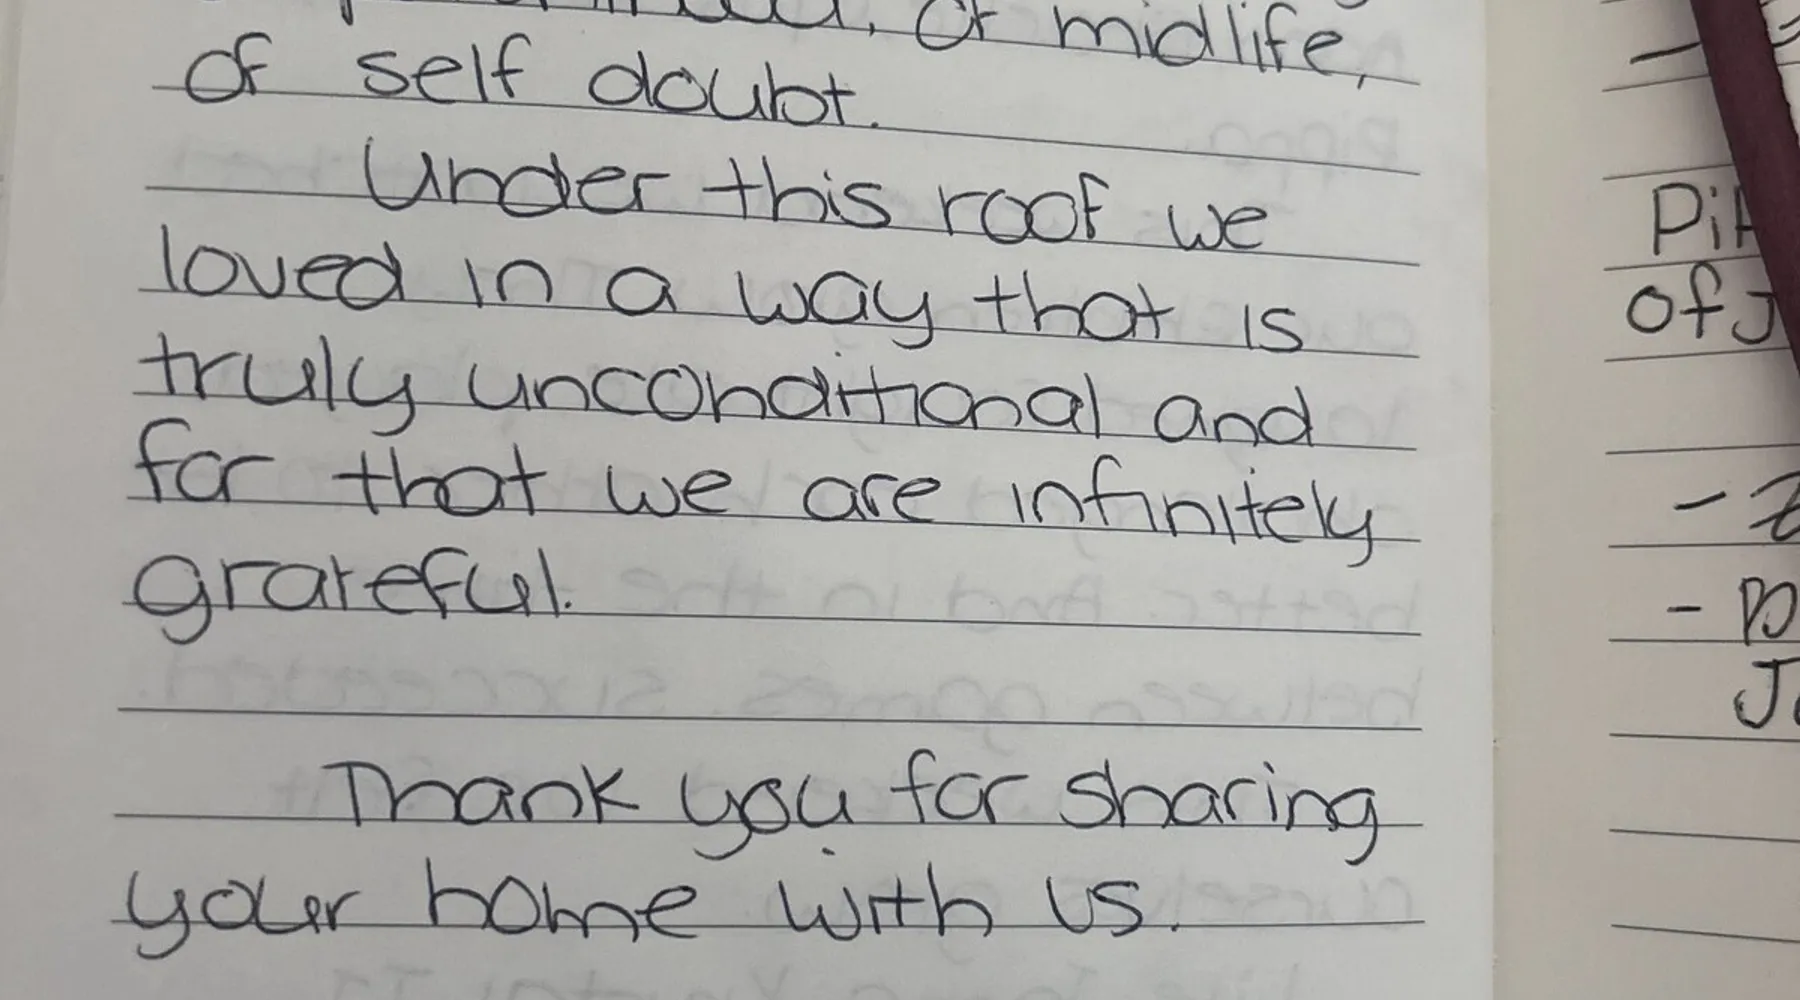 Of midlife,
of self doubt.
Under this roof we
loved in a way that is
truly unconditional and
for that we are infinitely
grateful.
Thank you for sharing
your home with us.
of